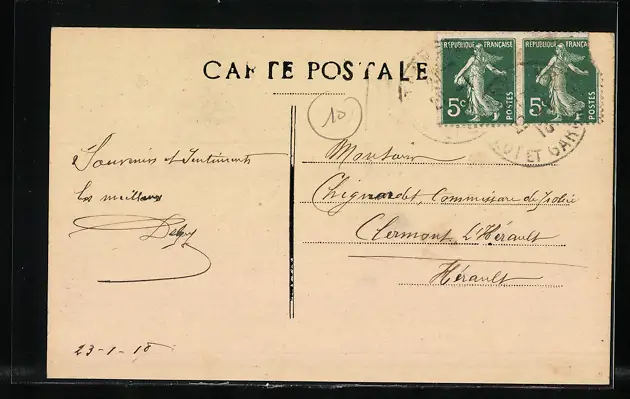 CARTE POSTALE
REPUBLIQUE FRANÇAISE
5c
POSTES
REPUBLIQUE FRANÇAISE
5c
POSTES
LOT ET GAR
10
Souvenirs et Sentiments
les meilleurs
23-1-18
Monsieur
Chignardet, Commissaire de Police
Clermont L'Hérault
Hérault